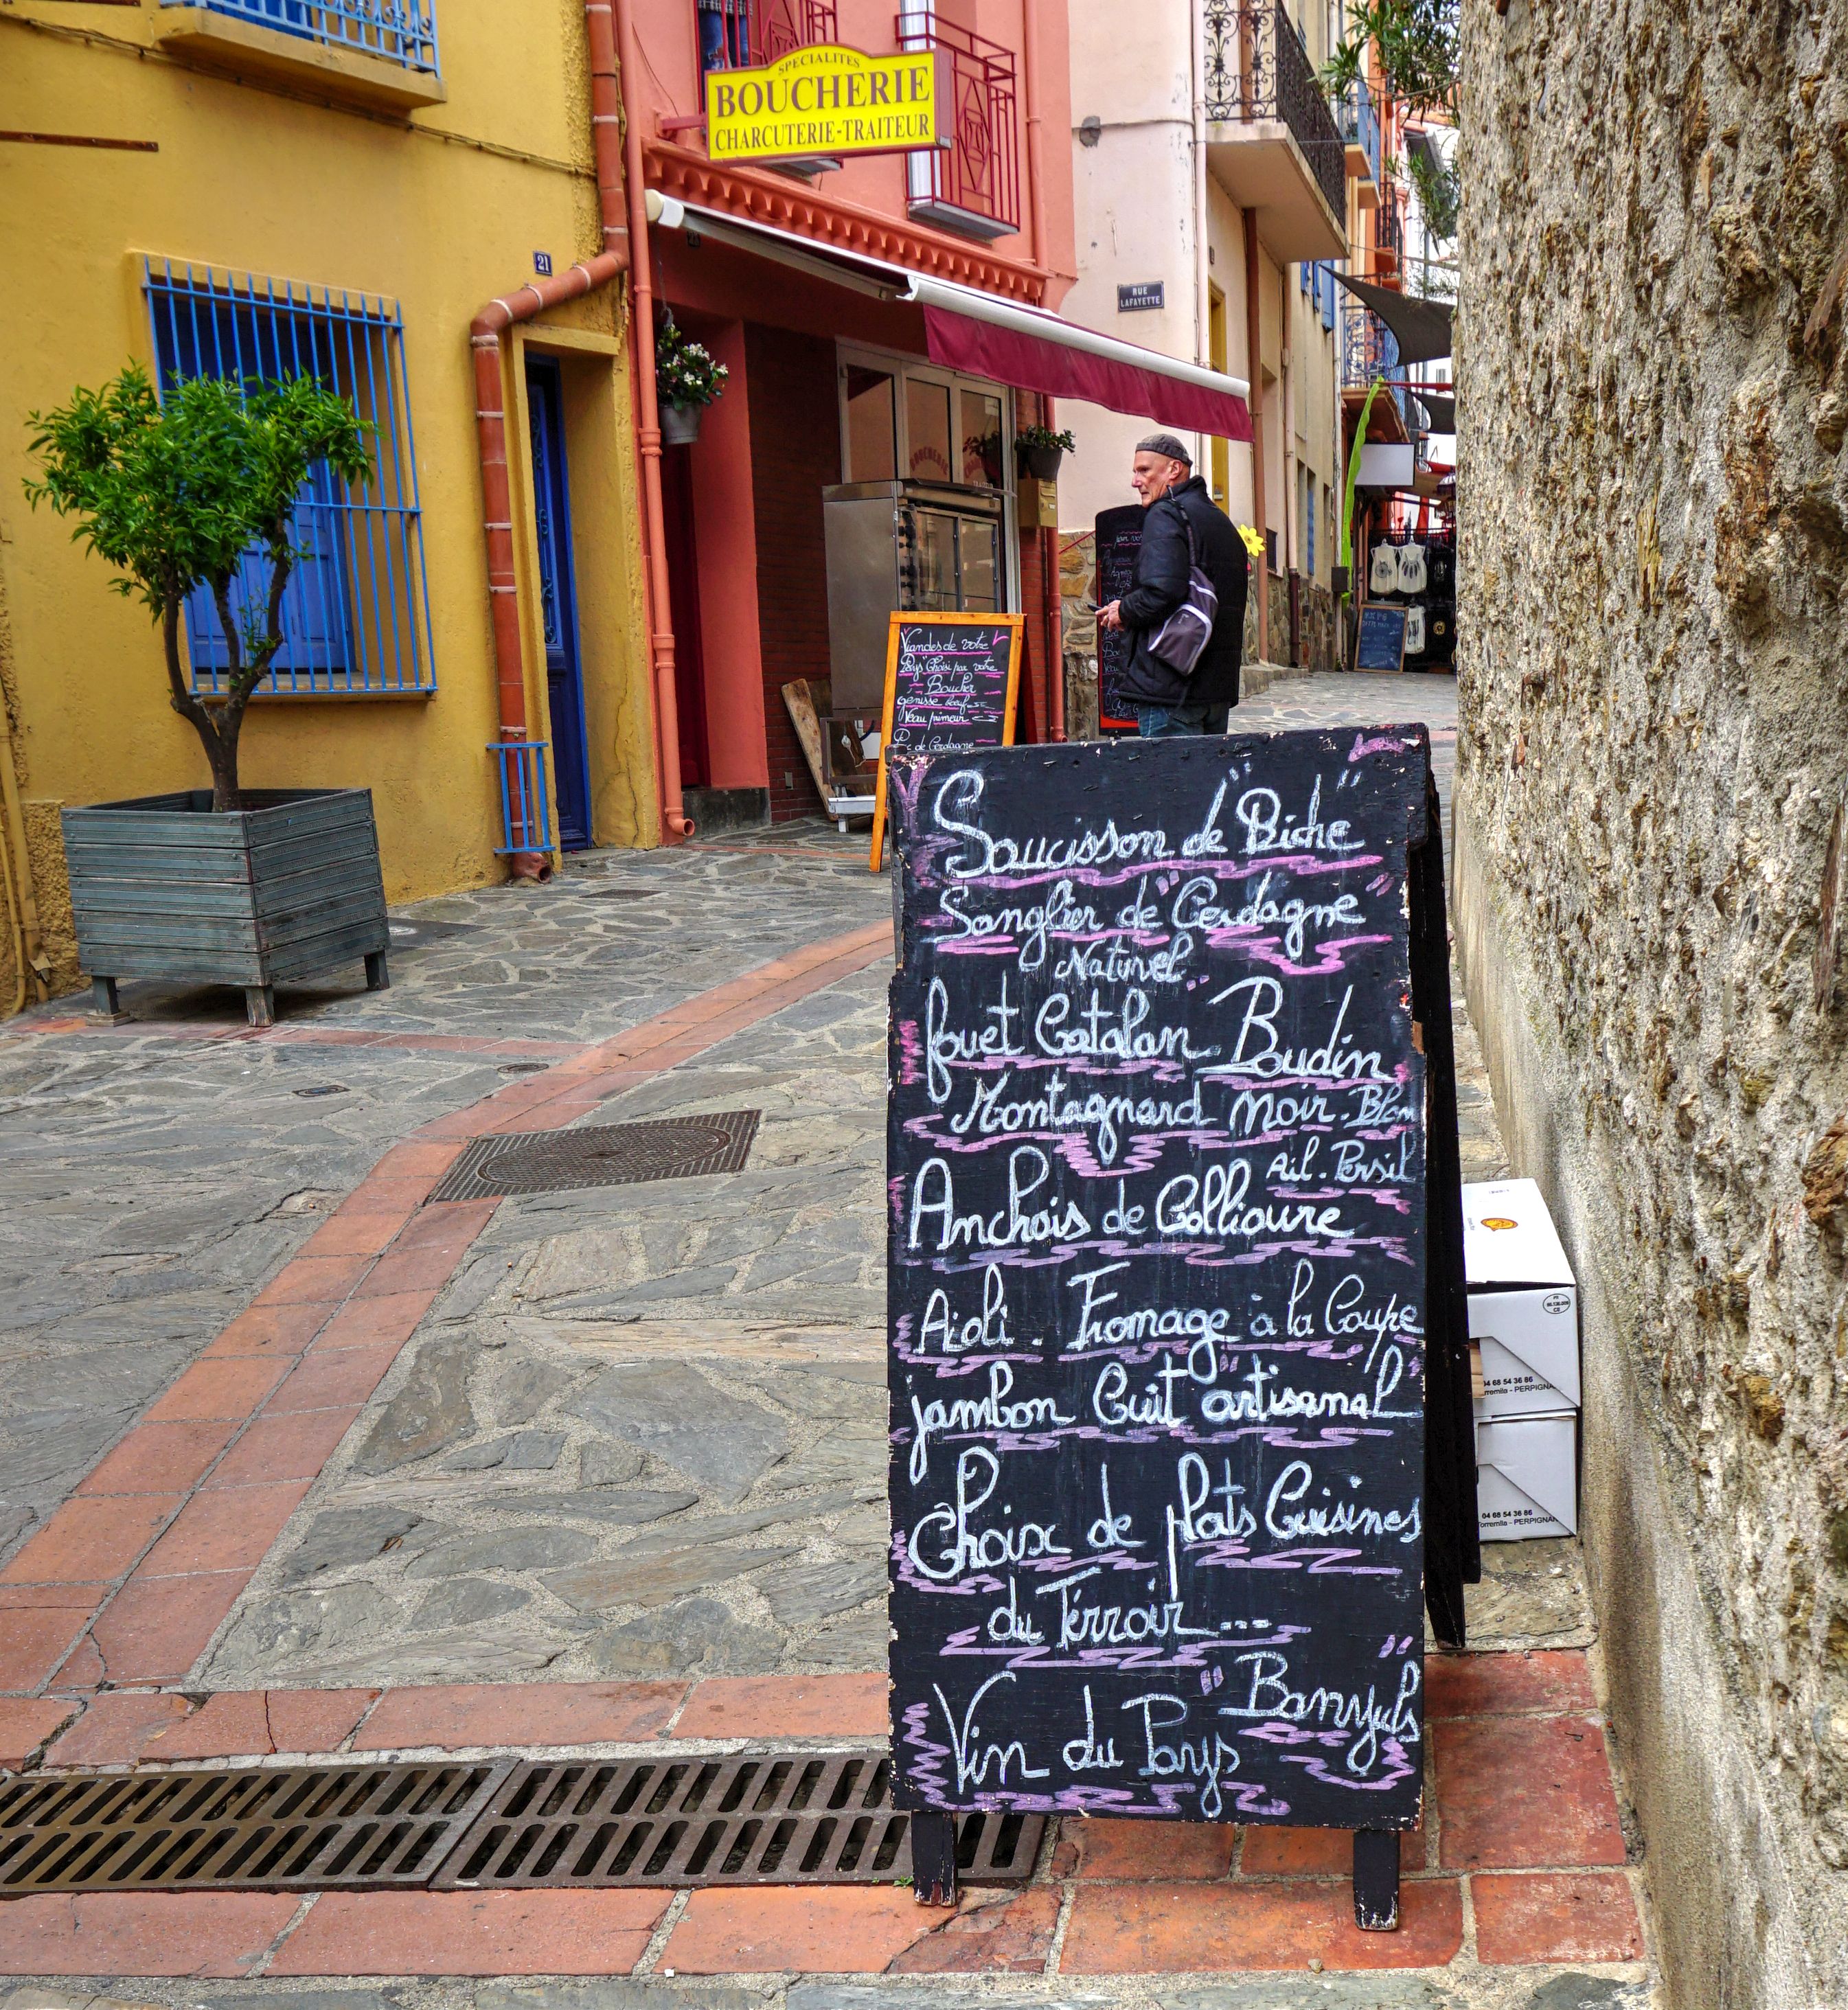 SPECIALITES
BOUCHERIE
CHARCUTERIE-TRAITEUR
21
RUE
LAFAYETTE
BOUCHERIE
Viandes de votre
Pays" Choisi par votre
Boucher
génisse bœuf
Veau primeur
Pc de Cerdagne
Saucisson de "Biche"
Sanglier de "Cerdagne"
Naturel
fouet Catalan Boudin
Montagnard Noir. Blan
Ail. Persil
Anchois de Collioure
Aïoli. Fromage à la Coupe
jambon Cuit "artisanal"
Choix de plats Cuisinés
du Térroir...
Vin du Pays "Banyuls"
04 68 54 36 86
Torremila - PERPIGNA
04 68 54 36 86
Torremila - PERPIGNAN